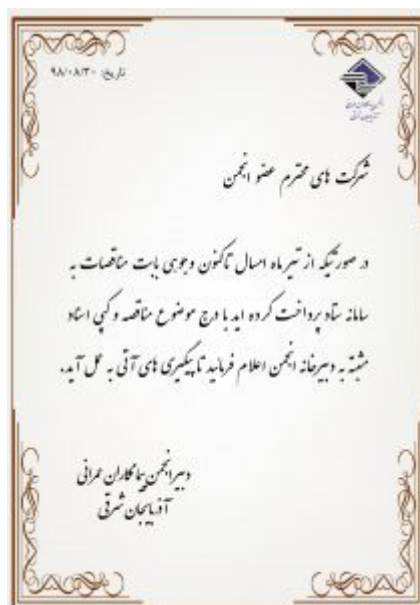 تاریخ: ۹۸/۰۸/۲۰
انجمن پیمانکاران عمرانی
آذربایجان شرقی
شرکت های محترم عضو انجمن
در صورتیکه از تیر ماه امسال تاکنون وجوهی بابت مناقصات به
سامانه ستاد پرداخت کرده اید با درج موضوع مناقصه و کپی اسناد
مثبته به دبیرخانه انجمن اعلام فرمائید تا پیگیری های آتی به عمل آید.
دبیر انجمن پیمانکاران عمرانی
آذربایجان شرقی